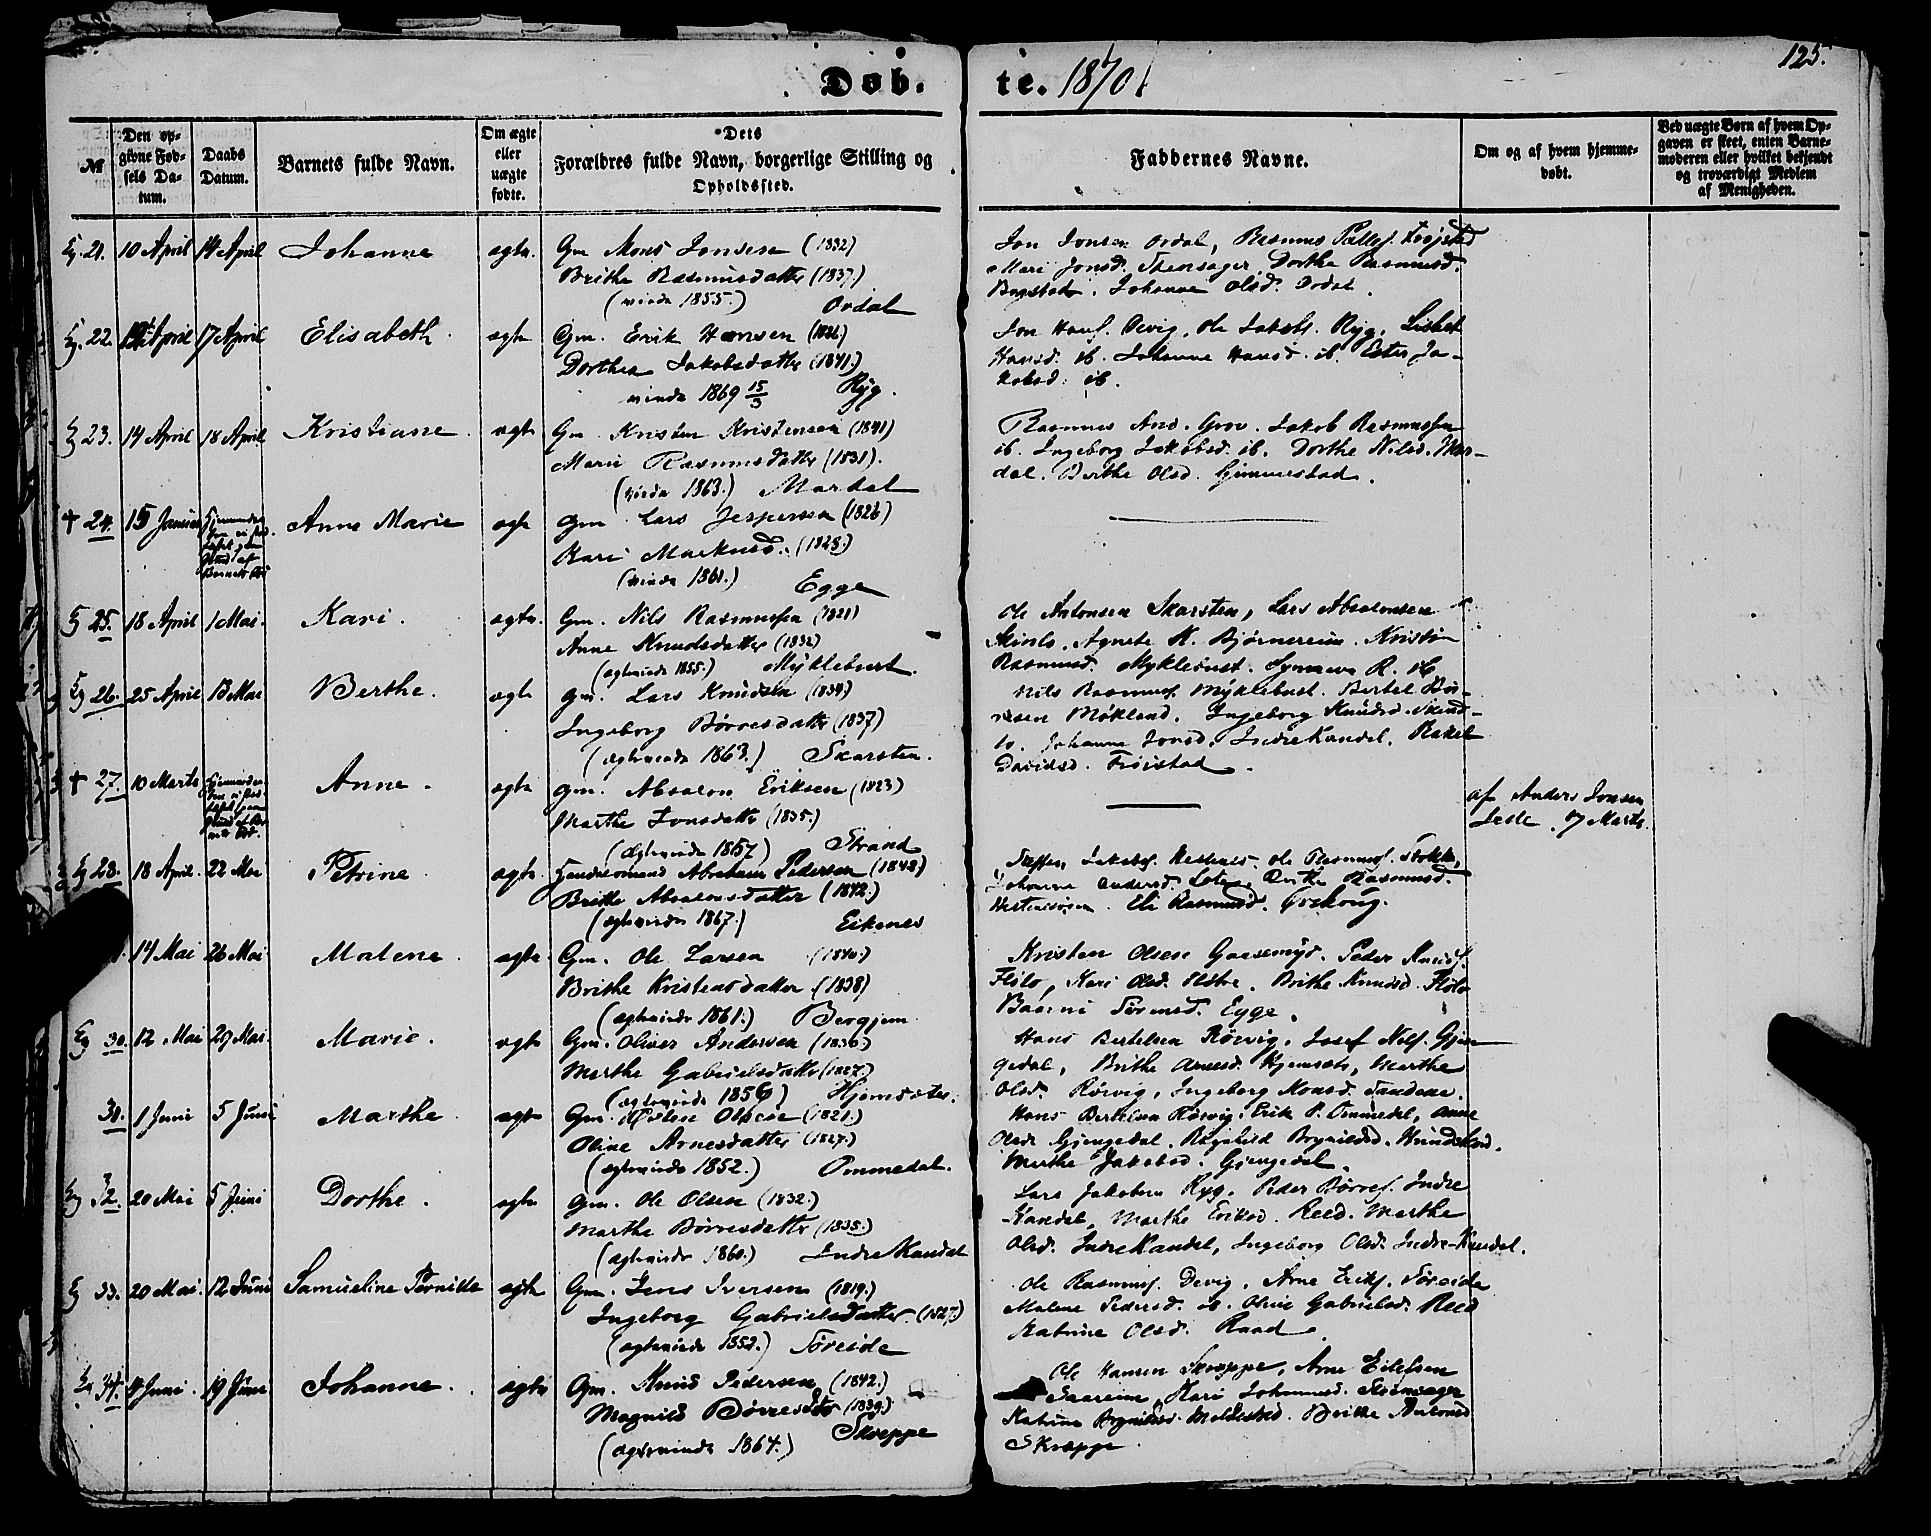 125.
Døb- te. 1870.
№
Den opgivne Fødsels Datum.
Daabs Datum.
Barnets fulde Navn.
Om ægte eller uægte fødte.
Dets Forældres fulde Navn, borgerlige Stilling og Opholdssted.
Faddernes Navne.
Om og af hvem hjemmedøbt.
Ved uægte Børn af hvem Opgaven er skeet, enten Barnemoderen eller hvilket bekjendt og troværdigt Medlem af Menigheden.
21. 10 April 14 April Johanne ægte. Gm Mons Jonsen (1832)
Brithe Rasmusdatter (1837)
(viede 1855.) Ordal
Jon Jonsen Ordal, Rasmus
Mari Jonsd. Steensager, Dorthe Rasmusd.
Johanne Olsd. Ordal.
22. April 17 April Elisabeth. ægte Gm. Erik Hansen
Dorthea Jakobsdatter (1841.)
viede 1869 15/3 Ryg.
Jon Hanss. Devig, Ole Jakobs. Ryg, Lisbet
Hansd. ib. Johanne Hansd. ib. Ester Ja-
kobsd. ib.
23. 14 April 18 April Kristiane ægte Gm. Kristen Kristensen (1841)
Marie Rasmusdatter (1831).
(viede 1863.) Mardal
Rasmus And. Grov. Jakob Rasmussen
ib. Ingeborg Jakobsd. ib. Dorthe Nilsd. Mar-
dal. Berthe Olsd. Gimmestad.
† 24. 15 Januar Anne Marie ægte Gm. Lars Jespersen (1826)
Kari Markusd. (1828.)
(viede 1861.) Egge
25. 18 April 1 Mai. Kari. ægte. Gm. Nils Rasmussen (1821)
Anne Knudsdatter (1832)
(ægteviede 1855.) Myklebust.
Ole Antonsen Skarsten, Lars Absalonsen
Agnete N. Bjørnereim. Kristin
Rasmusd. Myklebust. Synneva R. ib
26. 25 April 13 Mai Berthe. ægte Gm. Lars Knudsen (1834)
Ingeborg Børresdatter (1837)
(ægteviede 1863.) Skarsten.
Nils Rasmuss. Myklebust. Bertel Bør-
resen Møkland. Ingeborg Knudsd.
Johanne Jonsd. Indre Kandal. Rakel
Davidsd. Frøistad.
† 27. 10 Marts Anne. ægte Gm. Absalon Eriksen (1823)
Marthe Jonsdatter (1835.)
(Ægteviede 1857) Strand
af Anders Jonsen
17 Marts.
28. 18 April. 22 Mai Petrine. ægte. Handelsmand Abraham Pedersen (1842)
Brithe Absalonsdatter (1842.)
(ægteviede 1867.) Eikenes
Steffen Jakobs. Hestenes. Ole Rasmuss.
Johanne Andersd. Lote, Rasmusd.
Eli Rasmusd.
14 Mai 26 Mai Malene. ægte Gm. Ole Larsen (1840.)
Brithe Kristensdatter (1838)
(ægteviede 1861.) Bergjem
Kristen Olsen Gaasemyr. Peder Knuds.
Fløtø, Kari Olsd. Brithe Knudsd. Fløtø
Sørensd. Egge.
30. 12 Mai 29 Mai. Marie. ægte Gm. Oliver Andersen (1830)
Marthe Gabrielsdatter (1827.)
(ægteviede 1856) Hjemsæter.
Hans Bertelsen Rørvig, Josef Nils. Gjen-
gedal, Brithe Arnesd. Hjemsæt, Marthe
Olsd. Rørvig, Ingeborg Monsd. Sandene.
31. 1 Juni 5 Juni Marthe. ægte Gm. Østen Olsen (1821.)
Oline Arnesdatter (1827.)
(ægteviede 1852.) Ommedal.
Hans Bertelsen Rørvig, Erik P. Ommedal, Anne
Olsd. Gjengedal. Ragnhild Brynildsd.
Marthe Jakobsd. Gjengedal.
32. 20 Mai 5 Juni Dorthe. ægte Gm. Ole Olsen (1832.)
Marthe Børresdatter (1835.)
(ægteviede 1860.) Indre Kandal
Lars Jakobsen Ryg. Peder Børres. Indre
Kandal, Marthe Eriksd. Reed. Marthe
Olsd. Indre Kandal, Ingeborg Olsd. Indre-Kandal.
33. 20 Mai. 12 Juni Samueline Pernille ægte Gm. Jens Iversen (1819.)
Ingeborg Gabrielsdatter. (1827.)
(ægteviede 1852.) Søreide
Ole Rasmuss. Devig, Arne Eriks. Søreide
Malene Pedersd. ib. Oline Gabrielsd. Reed
Katrine Olsd. Raad.
34. 4 Juni. 19 Juni Johanne. ægte Gm. Knud Pedersen (1842.)
Magnild Børresdtr (1839)
(ægteviede 1864.) Skræppe
Ole Hansen Skræppe, Arne Eilefsen
Saareim, Kari Johannesd. Steensager
Katrine Brynildsd. Brithe Antonsd
Skræppe.